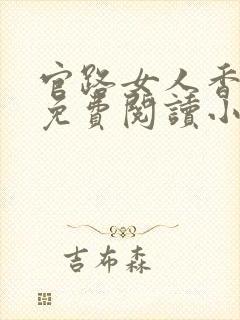 官路女人香
免費閱讀小
吉布森